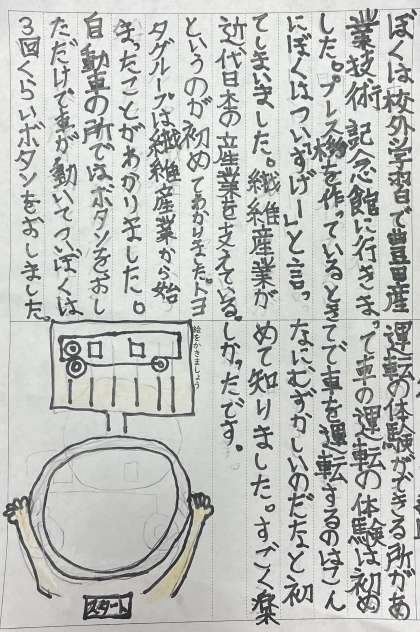 ぼくは校外学習で豊田産
業技術記念館に行きま
した。プレス を作っているとき
にぼくはつい「すげー」と言っ
てしまいました。繊維産業が
近代日本の立産業を支えている
というのが初めてわかりました。トヨ
タグループは繊維産業から始
まったことがわかりました。
自動車の所ではボタンをおし
ただけで車が動いてついぼくは
3回くらいボタンをおしました。
運転の体験ができる所があ
って車の運転の体験は初め
てで車を運転するのはこん
なにむずかしいのだなと初
めて知りました。すごく楽
しかったです。
絵をかきましょう
スタート